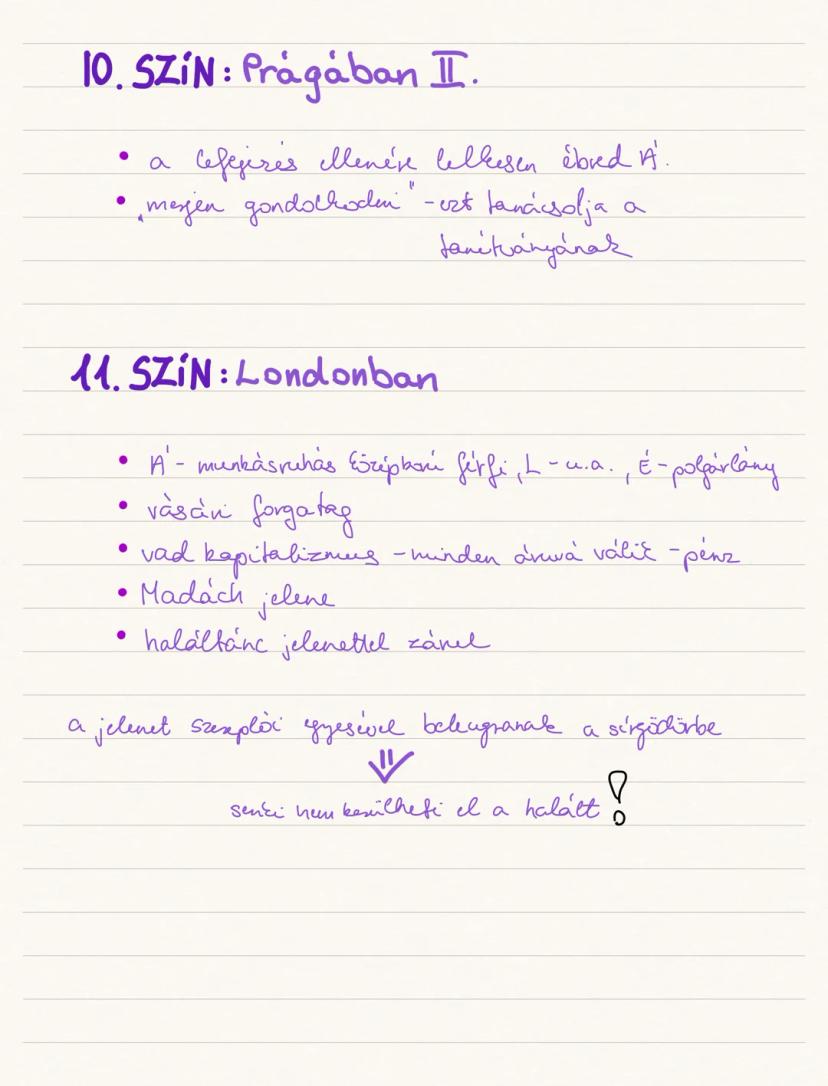 10. SZÍN: Prágában II.
• a lefejezés ellenére lelkesen ébred Á.
• „merjen gondolkodni" - ezt tanácsolja a
tanítványának
11. SZÍN: Londonban
• Á - munkásruhás középkorú férfi, L - u.a., É - polgárlány
• vásári forgatag
• vad kapitalizmus - minden áruvá válik - pénz
• Madách jelene
• haláltánc jelenettel zárul
a jelenet szereplői egyesével beleugranak a sírgödörbe
⇓
senki nem kerülheti el a halált!